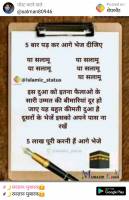 पोस्ट करने वाले
@salman80946
Posted on
शेयरचैट
5 बार पढ़ कर आगे भेज दीजिए
या सलामु या सलामु
या सलामु या सलामु
या सलामु
@islamic_status
इस दुआ को इतना फैलाओ के
सारी उम्मत की बीमारियां दूर हो
जाए यह बहुत कीमती दुआ है
दूसरों के भेजें इसको अपने पास ना
रखें
5 लाख पूरी करनी हैं आगे भेजे